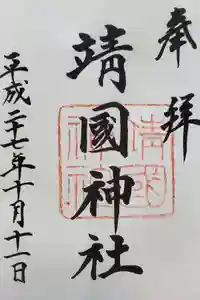 奉拝
靖國神社
平成二十七年十月十一日